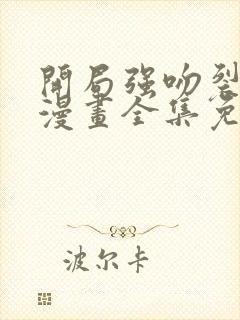 開局强吻裂
漫畫全集免
波尔卡